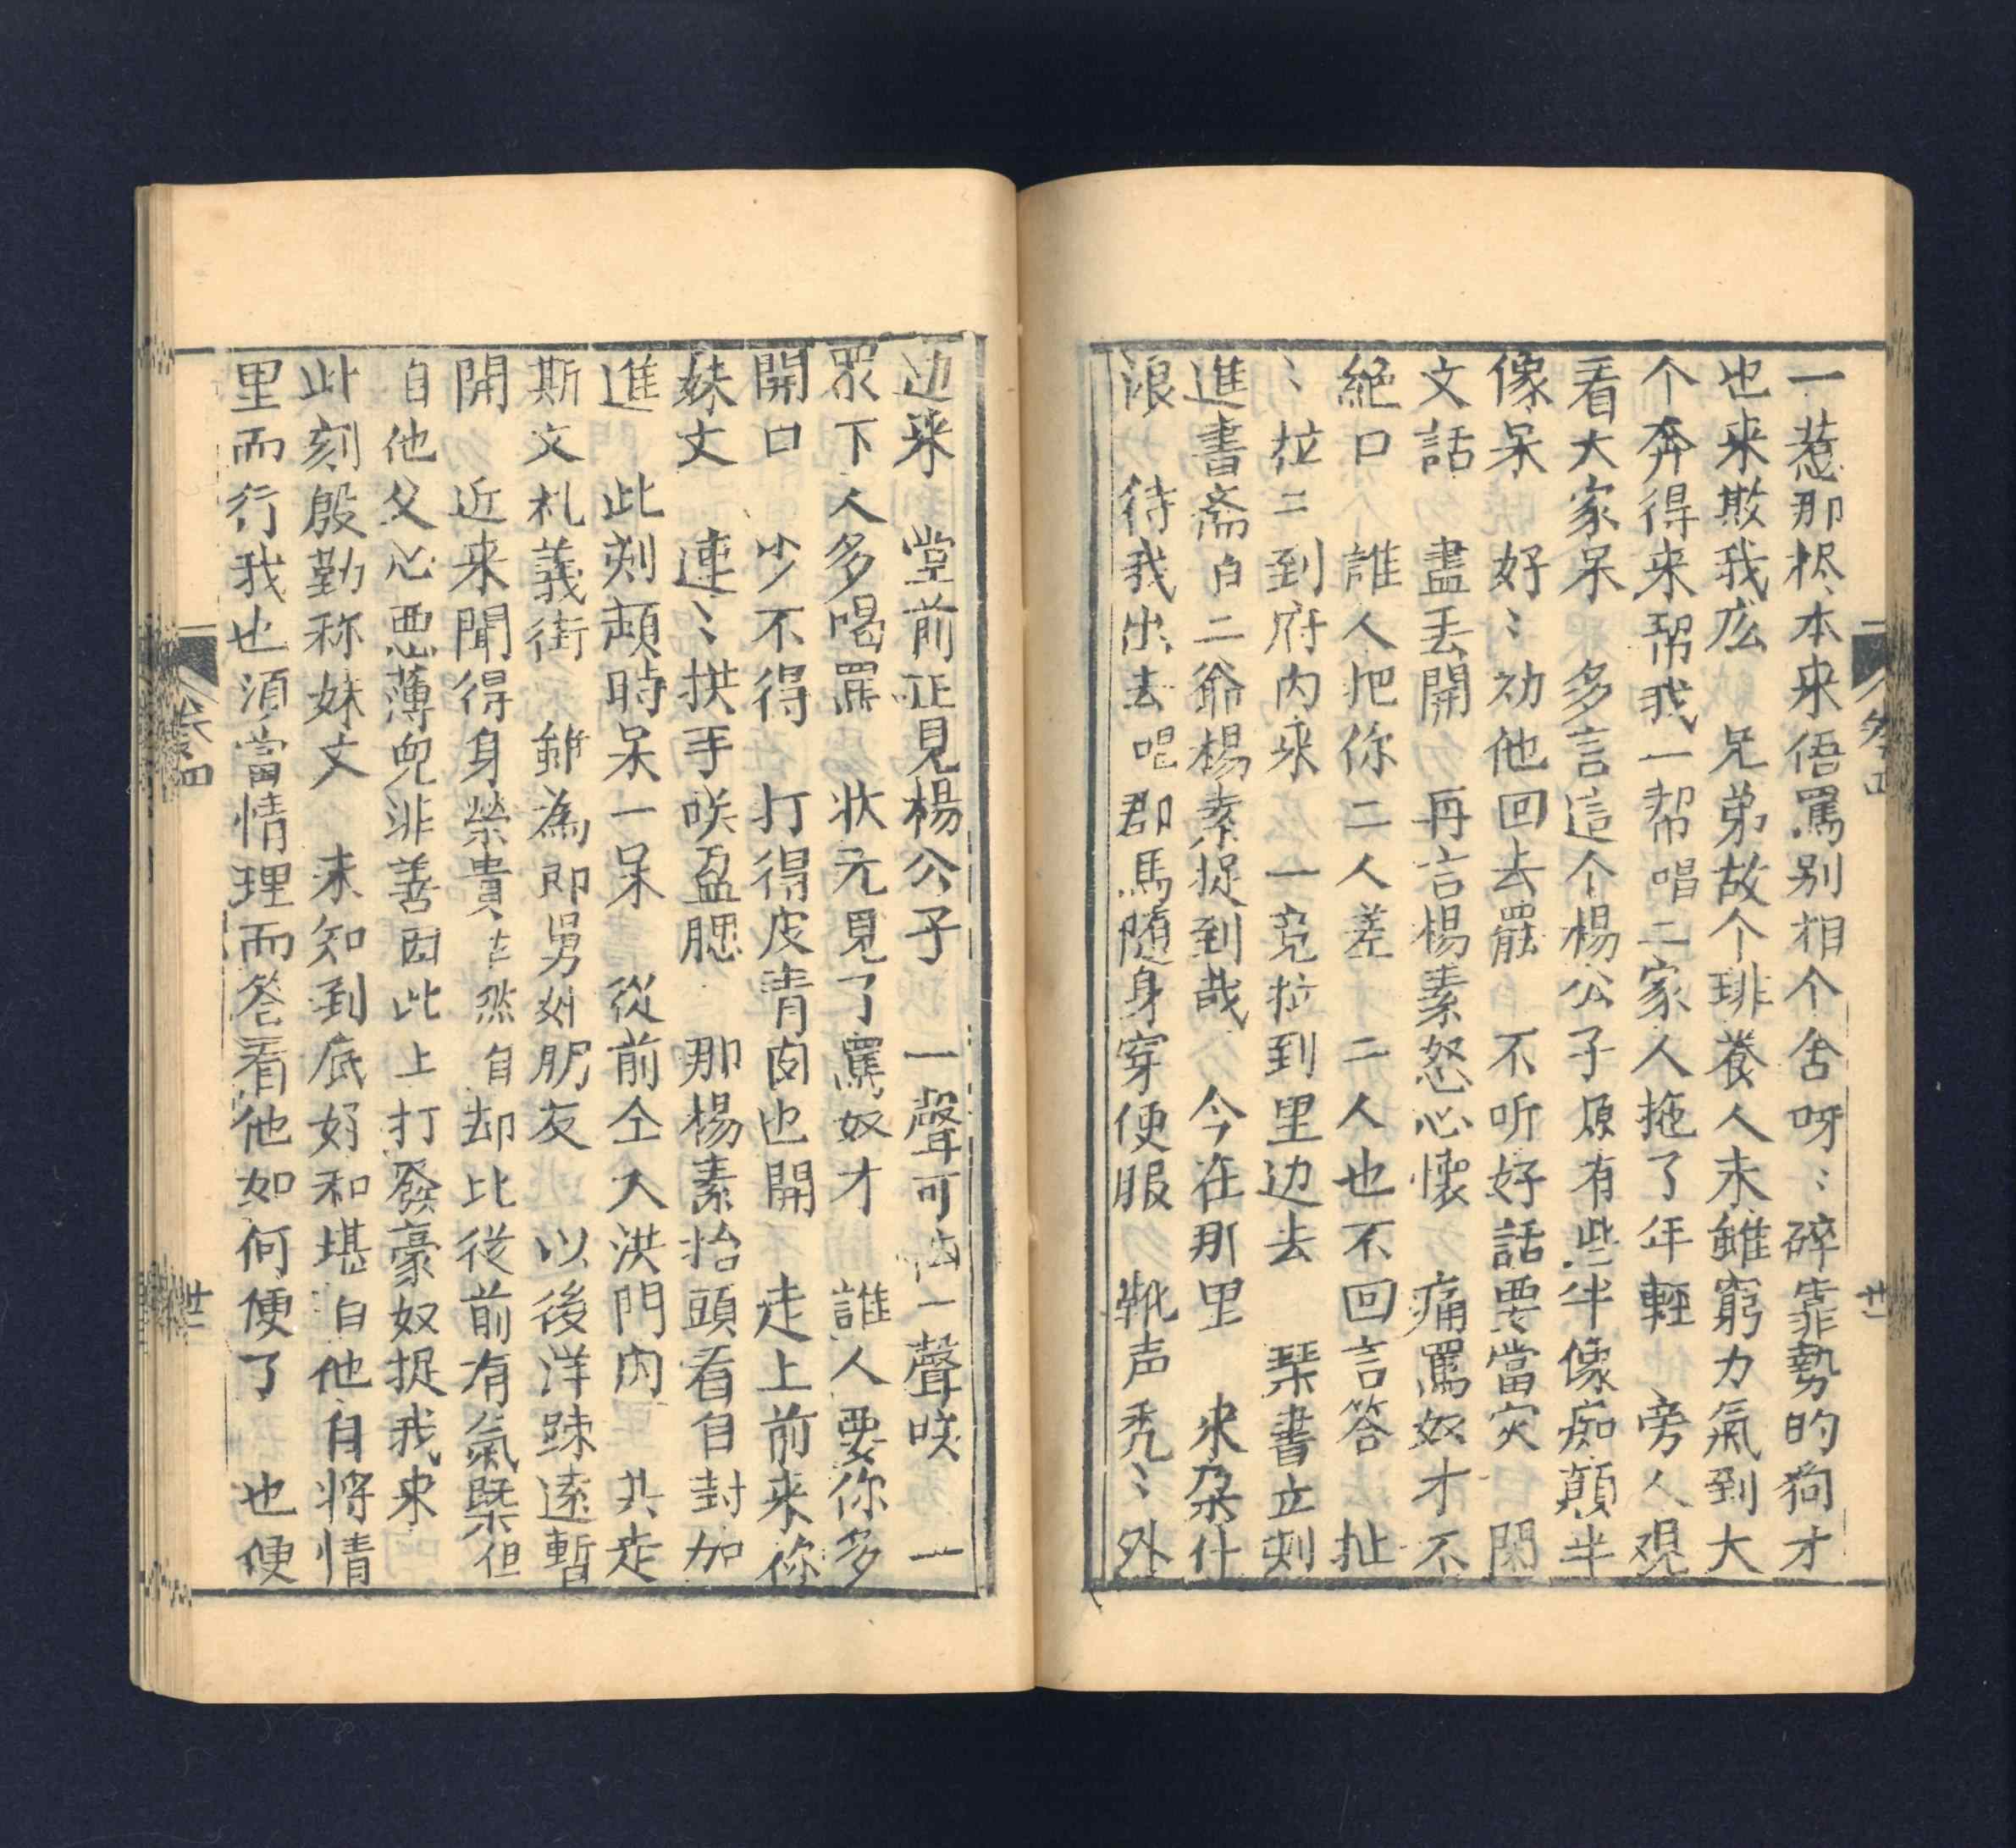 一惹那桭本来俉罵别相个舍呀〻碎靠勢的狗才
也来欺我庅　兄弟故个琲養人末雖窮力氣到大
个奔得来帮我一帮唱二家人拖了年輕　旁人观
看大家呆　多言這个楊公子原有些半像痴顛半
像呆　好〻劝他回去罷　不听好話要當灾　閑
文話　盡丢開　再言楊素怒心懷　痛罵奴才不
絕口　誰人把你二人差　二人也不回言答　扯
〻拉二到府内来　一竟拉到里边去　琹書立刻
進書斋白二爺楊素捉到哉　今在那里　来朶什
浪　待我出去唱郡馬随身穿便服　靴声秃〻外
边来　堂前正見楊公子　一聲可　一聲咲　一
眾下人多喝罵　状元見了罵奴才　誰人要你多
開口　少不得　打得皮青肉也開　走上前来你
妹丈　連〻拱手咲盈腮　那楊素抬頭看自封加
進　此刻頳時呆一呆　從前仝入洪門内　共走
斯文礼義街　雖為郎舅如朋友　以後洋踈遠暫
開　近来聞得身榮貴　然自却比從前有氣槩但
自他父心悪薄兜非善因此上打發豪奴捉我来
此刻殷勤称妹丈　未知到底好和堪白他自将情
里而行我也須當情理而答看他如何便了　也便
卷四
卷四